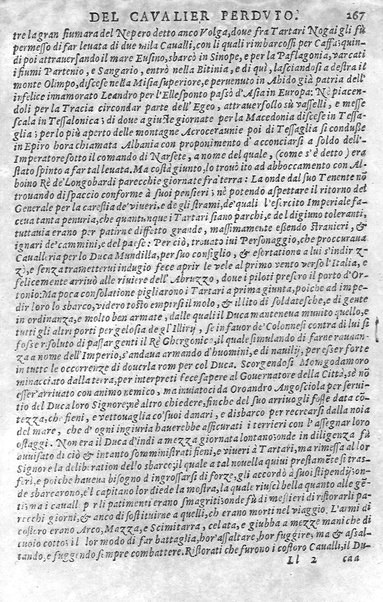 DEL CAVALIER PERDVTO. 267
tre la gran fiumara del Nepero detto anco Volga, doue fra Tartari Nogai gli fù
permesso di far leuata di due mila Caualli, con li quali rimbarcossi per Caffa; quin-
di poi attrauersando il mare Eusino, sbarcò in Sinope, e per la Paflagonia, varcati
i fiumi Partenio, e Sangario, entrò nella Bitinia, e di quì, lasciandosi a destra il
monte Olimpo, discese nella Misia superiore, e peruenuto in Abido già patria dell'
infelice innamorato Leandro per l'Ellesponto passò d'Asia in Europa; Nè piacen-
doli per la Tracia circondar parte dell'Egeo, attrauersollo sù vasselli, e messe
scala in Tessalonica; di doue a giuste giornate per la Macedonia discese in Tessa-
glia; e per lo più aperto delle montagne Acroceraunie poi di Tessaglia si condusse
in Epiro hora chiamata Albania con proponimento d'acconciarsi a soldo dell'
Imperatore sotto il comando di Narsete, a nome del quale, (come s'è detto) era
stato spinto a far tal leuata. Ma costà giunto, lo trouò ito ad abboccamento con Al-
boino Rè de'Longobardi parecchie giornate fra terra: La onde dal suo Tenente nõ
trouando di spaccio conforme à suoi pensieri; nè potendo aspettare il ritorno del
Generale per la carestia de'viueri, e de gli strami, de'quali l'esercito Imperiale fa-
cea tanta penuria, che quantunque i Tartari siano parchi, e del digiuno toleranti,
tuttauia erano per patirne diffetto grande, massimamente essendo stranieri, &
ignari de'cammini, e del paese: Per ciò, trouato iui Personaggio, che proccuraua
Caualleria per lo Duca Mundilla, per suo consiglio, & esortatione a lui s'indriz-
zò, e senza trametterui indugio fece aprir le vele al primo vento verso l'Italia, e
felicemente arriuò alle riuiere dell'Abruzzo, doue i piloti presero il porto d'Or-
tonio: Ma poca consolatione pigliarono i Tartari a prima giunta, poiche ad impe-
dir loro lo sbarco, videro tosto empirsi il molo, & il lito di soldatesche, e di gente
in ordinanza, e molto ben armate, dalle quali il Duca manteneua munito quello, e
tutti gli altri porti per gelosia de gl'Illirij, se in fauor de'Colonnesi contra di lui si
fossero risoluto di passar genti il Rè Ghergonio; il quale simulando di farne raunan-
za a nome dell'Imperio, s'andaua armando d'huomini, e di nauilij, per esser forte
in tutte le occorrenze di douerla rom per col Duca. Scorgendosi Menogdonaro
minacciato dalla terra, per interpreti fece sapere al Governatore della Città, sè nõ
esser'arriuato con animo nemico, ma inuiatoci da Oroandro Angosciola per serui-
tio del Duca loro Signore; nè altro chiedere, finche del suo arriuo gli fosse data cõ-
tezza, che fieni, e vettouaglia co'suoi danari, e disbarco per recrearsi dalla noia
del mare, che d'ogni ingiuria hauerebbe assicurati i terrieri con l'assegnar loro
ostaggi. Non era il Duca d'indi a mezza giornata lontano; onde in diligenza fù
auuisato di ciò & intanto somministrati fieni, e viueri à Tartari, ma rimessa al lor
Signore la deliberation dello sbarco; il quale a tal nouella quiui prestamente si tras-
ferì, e poiche haueua bisogno d'ingrossarsi di forze, gli accordò a suoi stipendij, on-
de sbarcarono, e'l capitano lor diede la mostra, la quale riuscì bella quanto alle gẽ-
ti, ma i caualli pe'li patimenti erano smagriti, onde fù di mestieri di ristorarli pa-
recchi giorni, & anco di sostituirne a quelli, ch'erano morti nel viaggio. L'armi di
costoro erano, Arco, Mazza, e Scimitarra, celata, e giubba a mezze maniche di
cuoio cotto; il lor modo di far battaglia, hor'assaltare, hor fuggire, ma & assal-
tando, e fuggendo sẽpre combattere. Ristorati che furono i costoro Caualli, il Du-
Ll 2 ca a